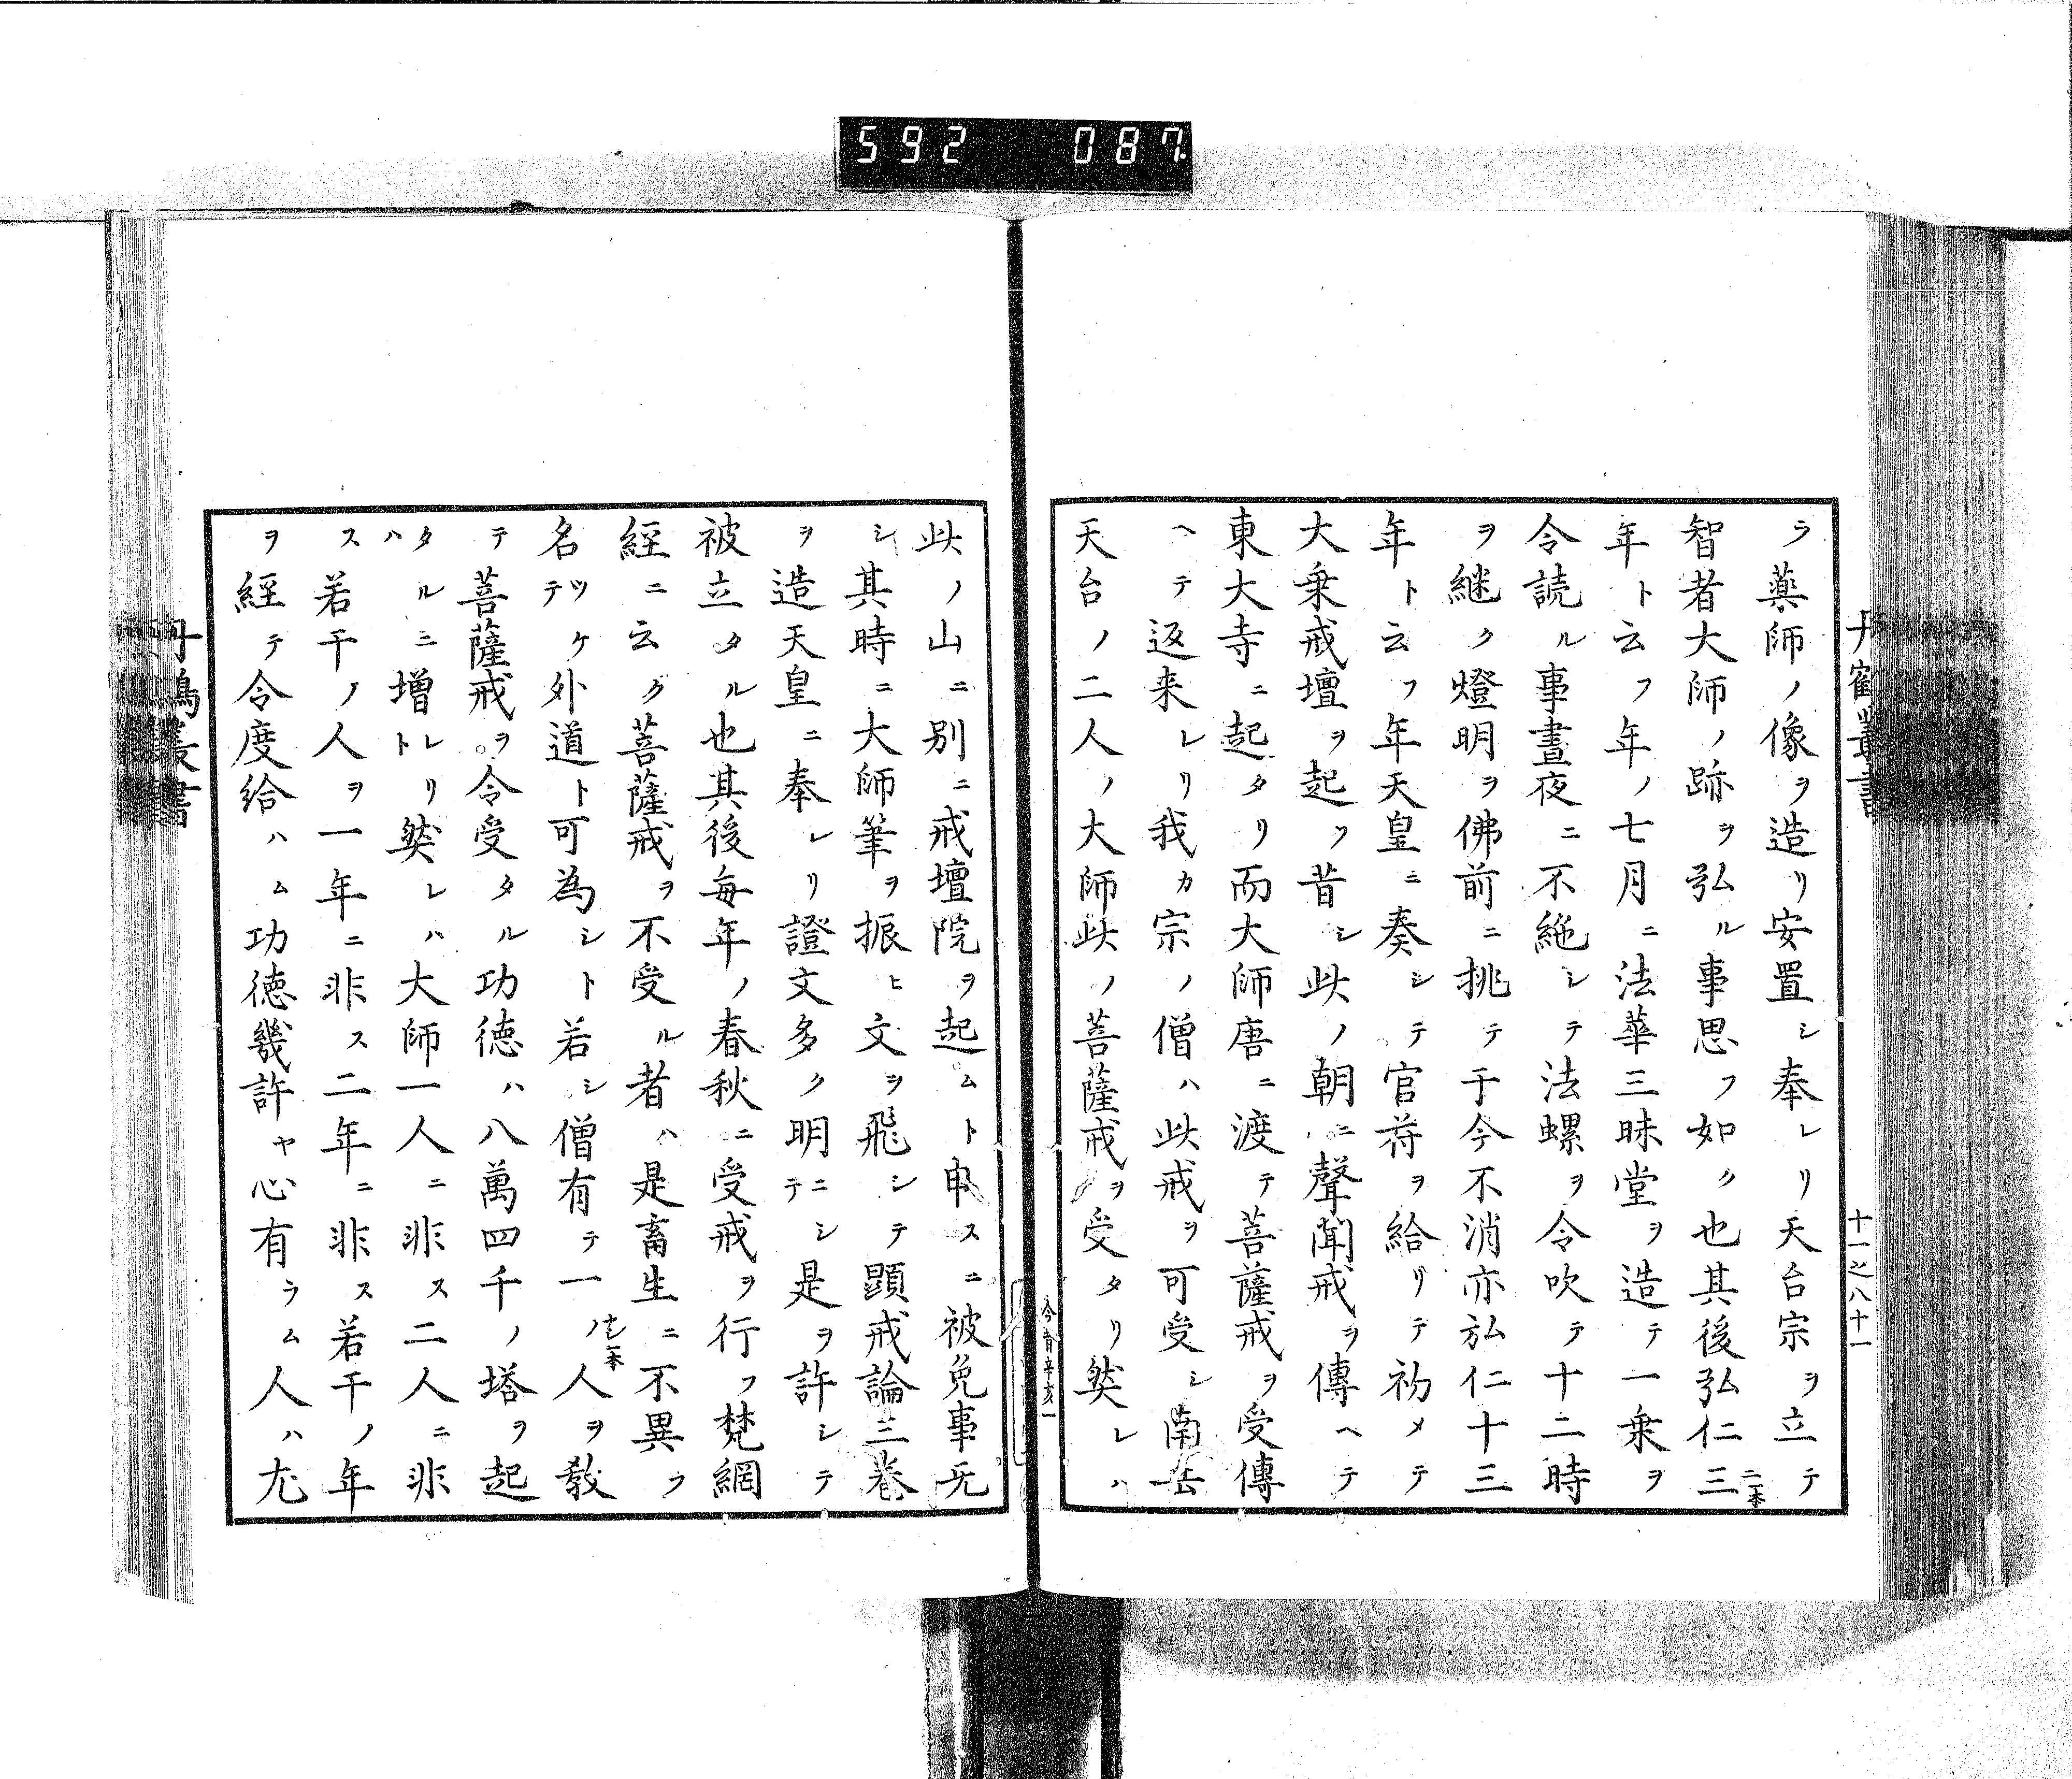 592 087
丹鶴叢書
十一之八十一
ラ薬師ノ像ヲ造リ安置シ奉レリ天台宗ヲ立テ
智者大師ノ跡ヲ弘ル事思フ如ク也其後弘仁三二一本
年ト云フ年ノ七月ニ法華三昧堂ヲ造テ一乗ヲ
令読ル事晝夜ニ不絶シテ法螺ヲ令吹テ十二時
ヲ継ク燈明ヲ佛前ニ挑テ于今不消亦弘仁十三
年ト云フ年天皇ニ奏シテ官苻ヲ給リテ初メテ
大乗戒壇ヲ起ツ昔シ此ノ朝ニ聲聞戒ヲ傳ヘテ
東大寺ニ起タリ而大師唐ニ渡テ菩薩戒ヲ受傳
ヘテ返来レリ我カ宗ノ僧ハ此戒ヲ可受シ南岳
天台ノ二人ノ大師此ノ菩薩戒ヲ受タリ然レハ
今昔辛亥一
此ノ山ニ別ニ戒壇院ヲ起ムト申スニ被免事无
シ其時ニ大師筆ヲ振ヒ文ヲ飛シテ顕戒論三巻
ヲ造天皇ニ奉レリ證文多ク明ニシテ是ヲ許シテ
被立タル也其後毎年ノ春秋ニ受戒ヲ行フ梵網
經ニ云ク菩薩戒ヲ不受ル者ハ是畜生ニ不異ラ
名ツケテ外道ト可為シト若シ僧有テ一ノナシ一本人ヲ敎
テ菩薩戒ヲ令受タル功徳ハ八萬四千ノ塔ヲ起
タルニハ増レリト然レハ大師一人ニ非ス二人ニ非
ス若干ノ人ヲ一年ニ非ス二年ニ非ス若干ノ年
ヲ經テ令度給ハム功徳幾許ヤ心有ラム人ハ尤
丹鶴叢書